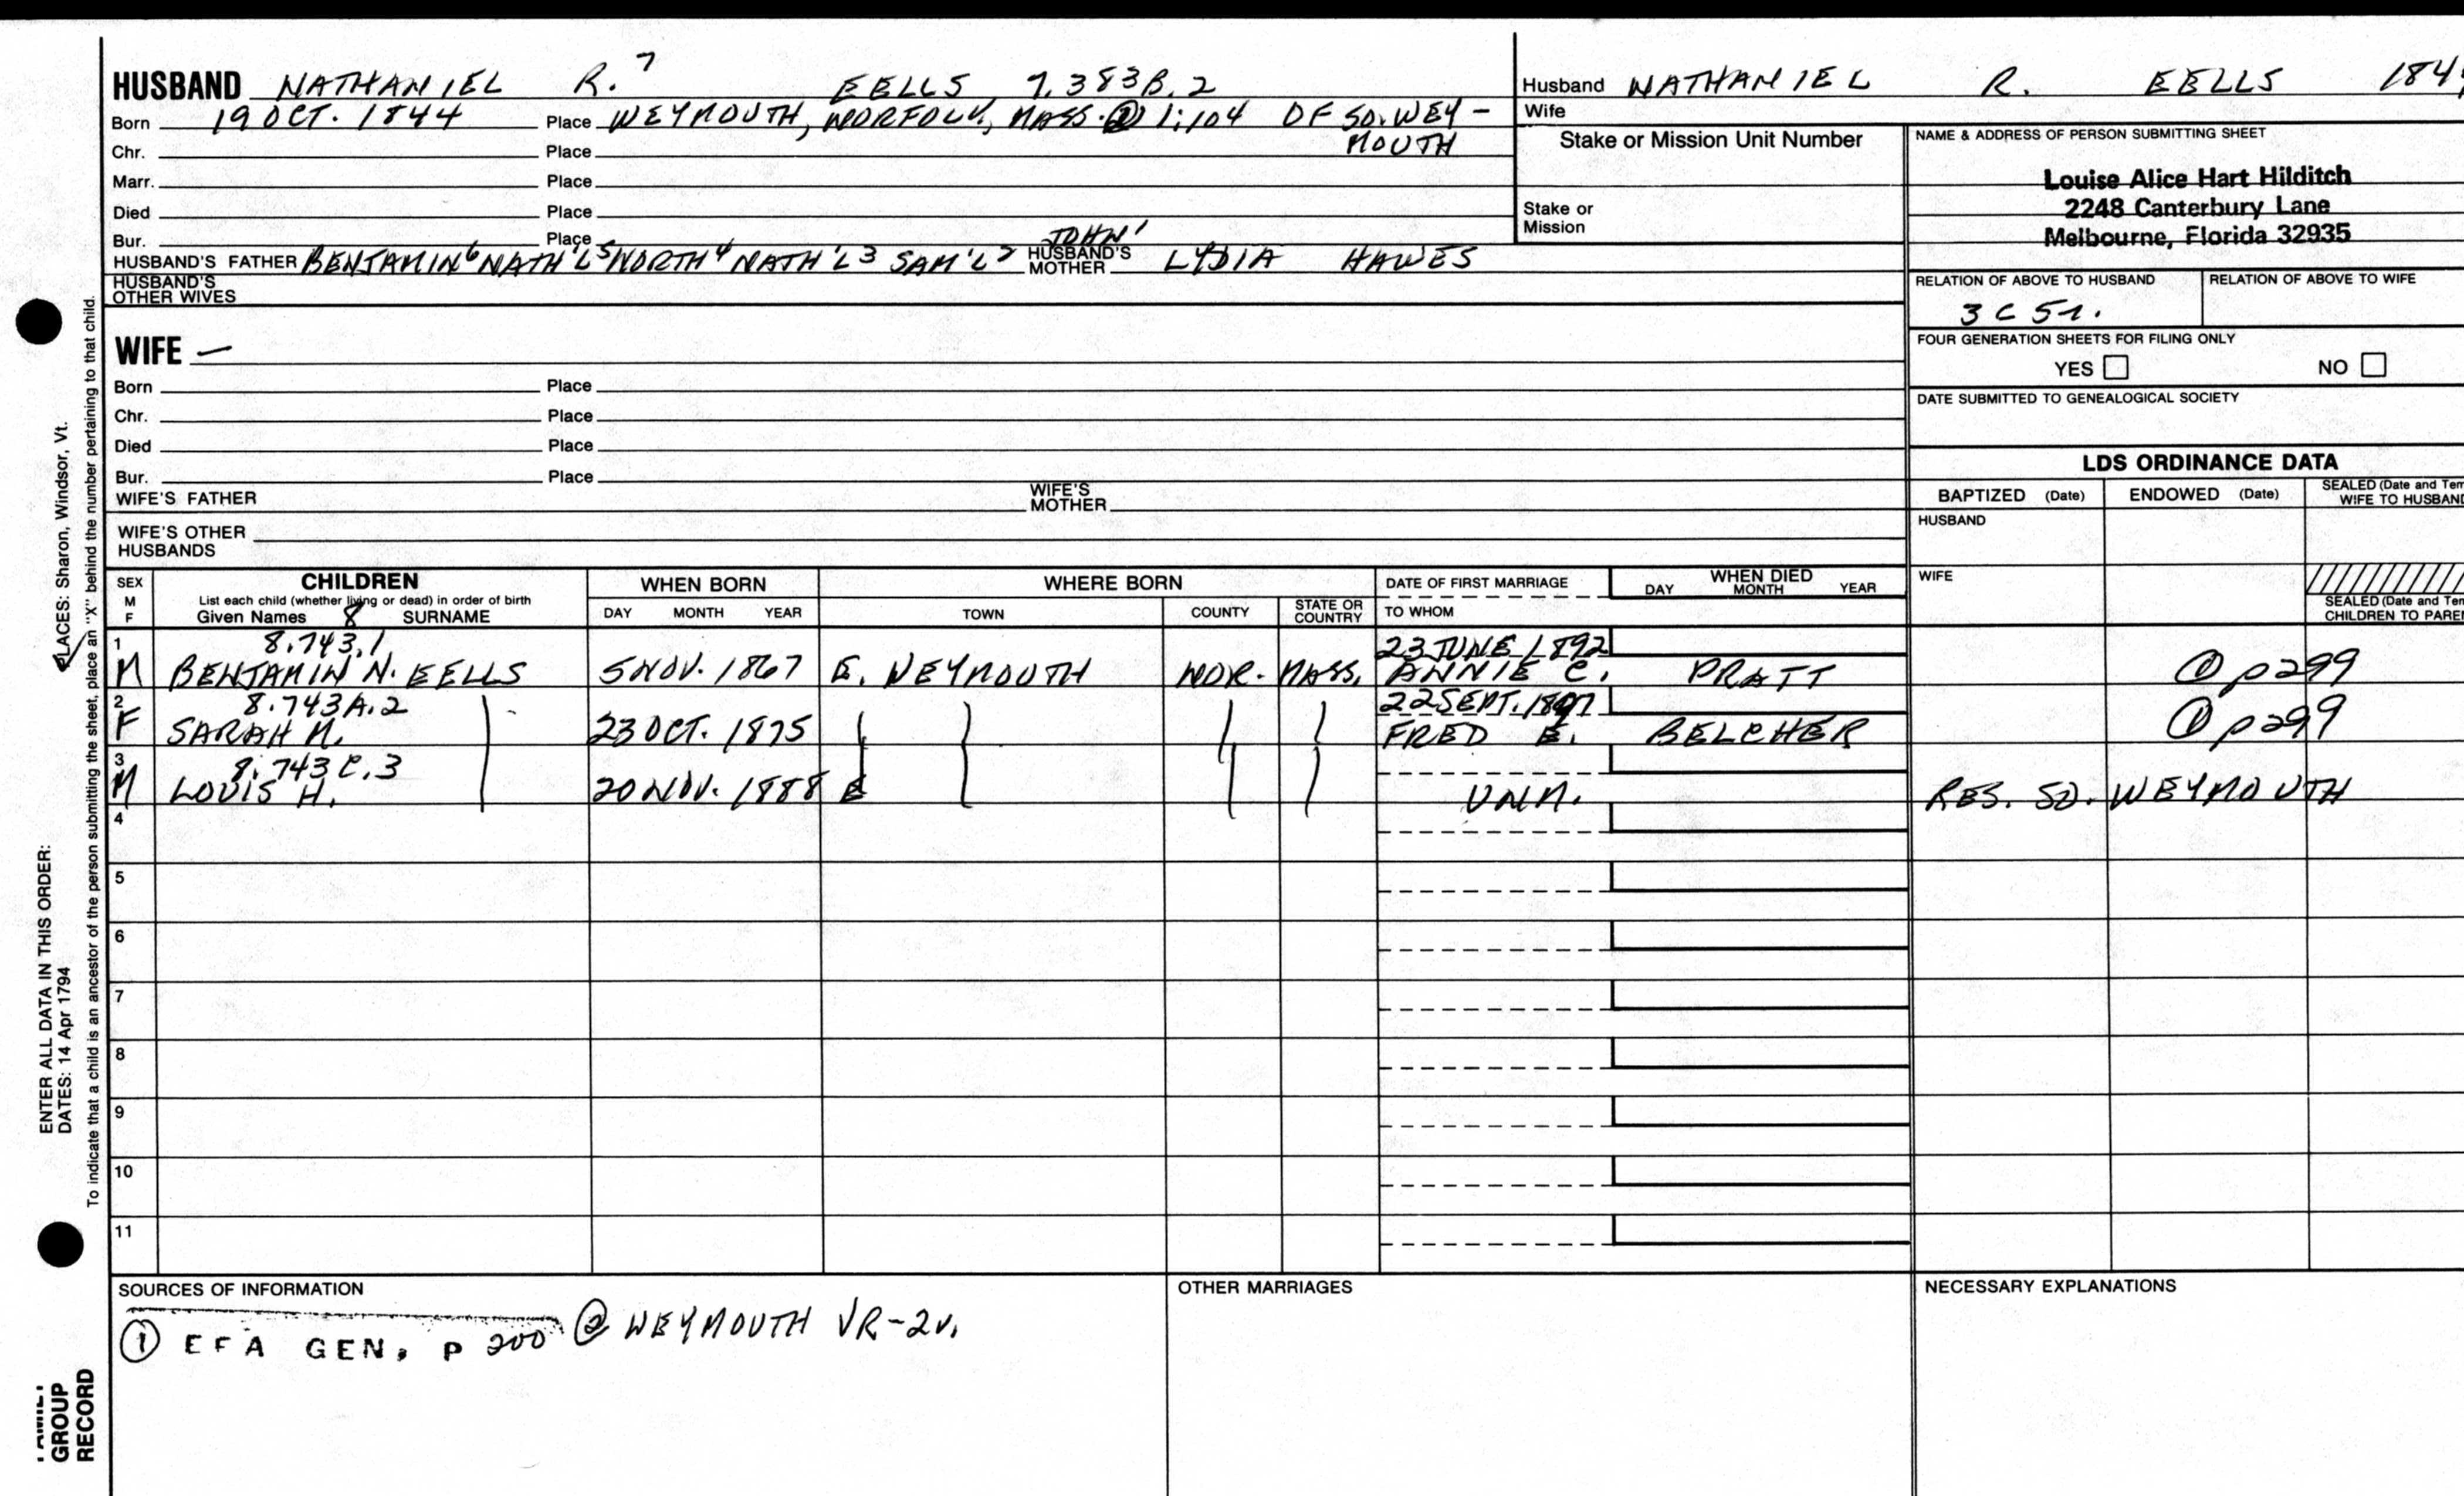 HUSBAND NATHANIEL R.⁷ EELLS 7.383B.2
Born 19 OCT. 1844 Place WEYMOUTH, NORFOLK, MASS. ② 1:104 OF SO. WEY-
Chr. Place MOUTH
Marr. Place
Died Place
Bur. Place
JOHN¹
HUSBAND'S FATHER BENJAMIN⁶ NATH'L⁵ NORTH⁴ NATH'L³ SAM'L² HUSBAND'S MOTHER LYDIA HAWES
HUSBAND'S OTHER WIVES
WIFE —
Born Place
Chr. Place
Died Place
Bur. Place
WIFE'S FATHER WIFE'S MOTHER
WIFE'S OTHER HUSBANDS
Husband NATHANIEL R. EELLS
Wife
Stake or Mission Unit Number
Stake or Mission
NAME & ADDRESS OF PERSON SUBMITTING SHEET
Louise Alice Hart Hilditch
2248 Canterbury Lane
Melbourne, Florida 32935
RELATION OF ABOVE TO HUSBAND RELATION OF ABOVE TO WIFE
3 C 5
FOUR GENERATION SHEETS FOR FILING ONLY
YES NO
DATE SUBMITTED TO GENEALOGICAL SOCIETY
LDS ORDINANCE DATA
BAPTIZED (Date) ENDOWED (Date) SEALED (Date and Tem
WIFE TO HUSBAND
HUSBAND
WIFE
SEALED (Date and Tem
CHILDREN TO PARE
SEX M F
CHILDREN
List each child (whether living or dead) in order of birth
Given Names 8 SURNAME
WHEN BORN
DAY MONTH YEAR
WHERE BORN
TOWN COUNTY STATE OR COUNTRY
DATE OF FIRST MARRIAGE
TO WHOM
WHEN DIED
DAY MONTH YEAR
1 8.743.1 23 JUNE 1892
M BENJAMIN N. EELLS 5 NOV. 1867 E. WEYMOUTH NOR. MASS. ANNIE C. PRATT ① p299
2 8.743A.2 22 SEPT. 1897
F SARAH M. 23 OCT. 1875 FRED E. BELCHER ① p299
3 8.743C.3
M LOUIS H. 20 NOV. 1888 UNM. RES. SO. WEYMOUTH
4
5
6
7
8
9
10
11
SOURCES OF INFORMATION
① EFA GEN, P 200 ② WEYMOUTH VR-2v.
OTHER MARRIAGES
NECESSARY EXPLANATIONS
PLACES: Sharon, Windsor, Vt.
ENTER ALL DATA IN THIS ORDER:
DATES: 14 Apr 1794
To indicate that a child is an ancestor of the person submitting the sheet, place an "X" behind the number pertaining to that child.
GROUP
RECORD